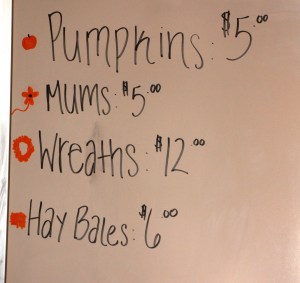 Pumpkins: $5.00
Mums: $5.00
Wreaths: $12.00
Hay Bales: $6.00